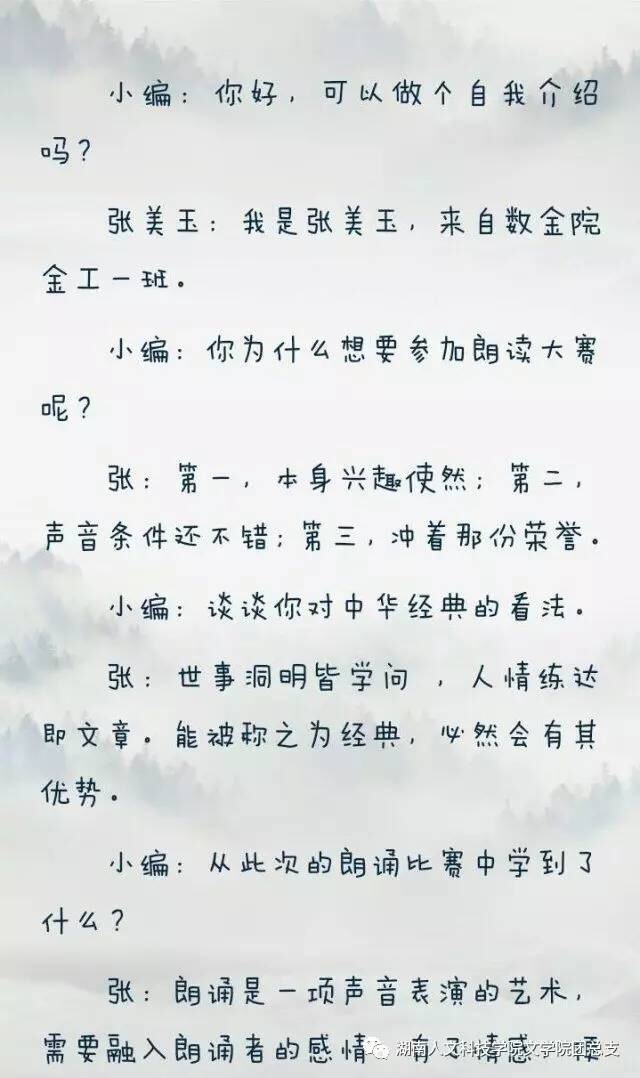 小编：你好，可以做个自我介绍
吗？
张美玉：我是张美玉，来自数金院
金工一班。
小编：你为什么想要参加朗读大赛
呢？
张：第一，本身兴趣使然；第二，
声音条件还不错；第三，冲着那份荣誉。
小编：谈谈你对中华经典的看法。
张：世事洞明皆学问 ，人情练达
即文章。能被称之为经典，必然会有其
优势。
小编：从此次的朗诵比赛中学到了
什么？
张：朗诵是一项声音表演的艺术，
需要融入朗诵者的感情
湖南人文科技学院文学院团总支